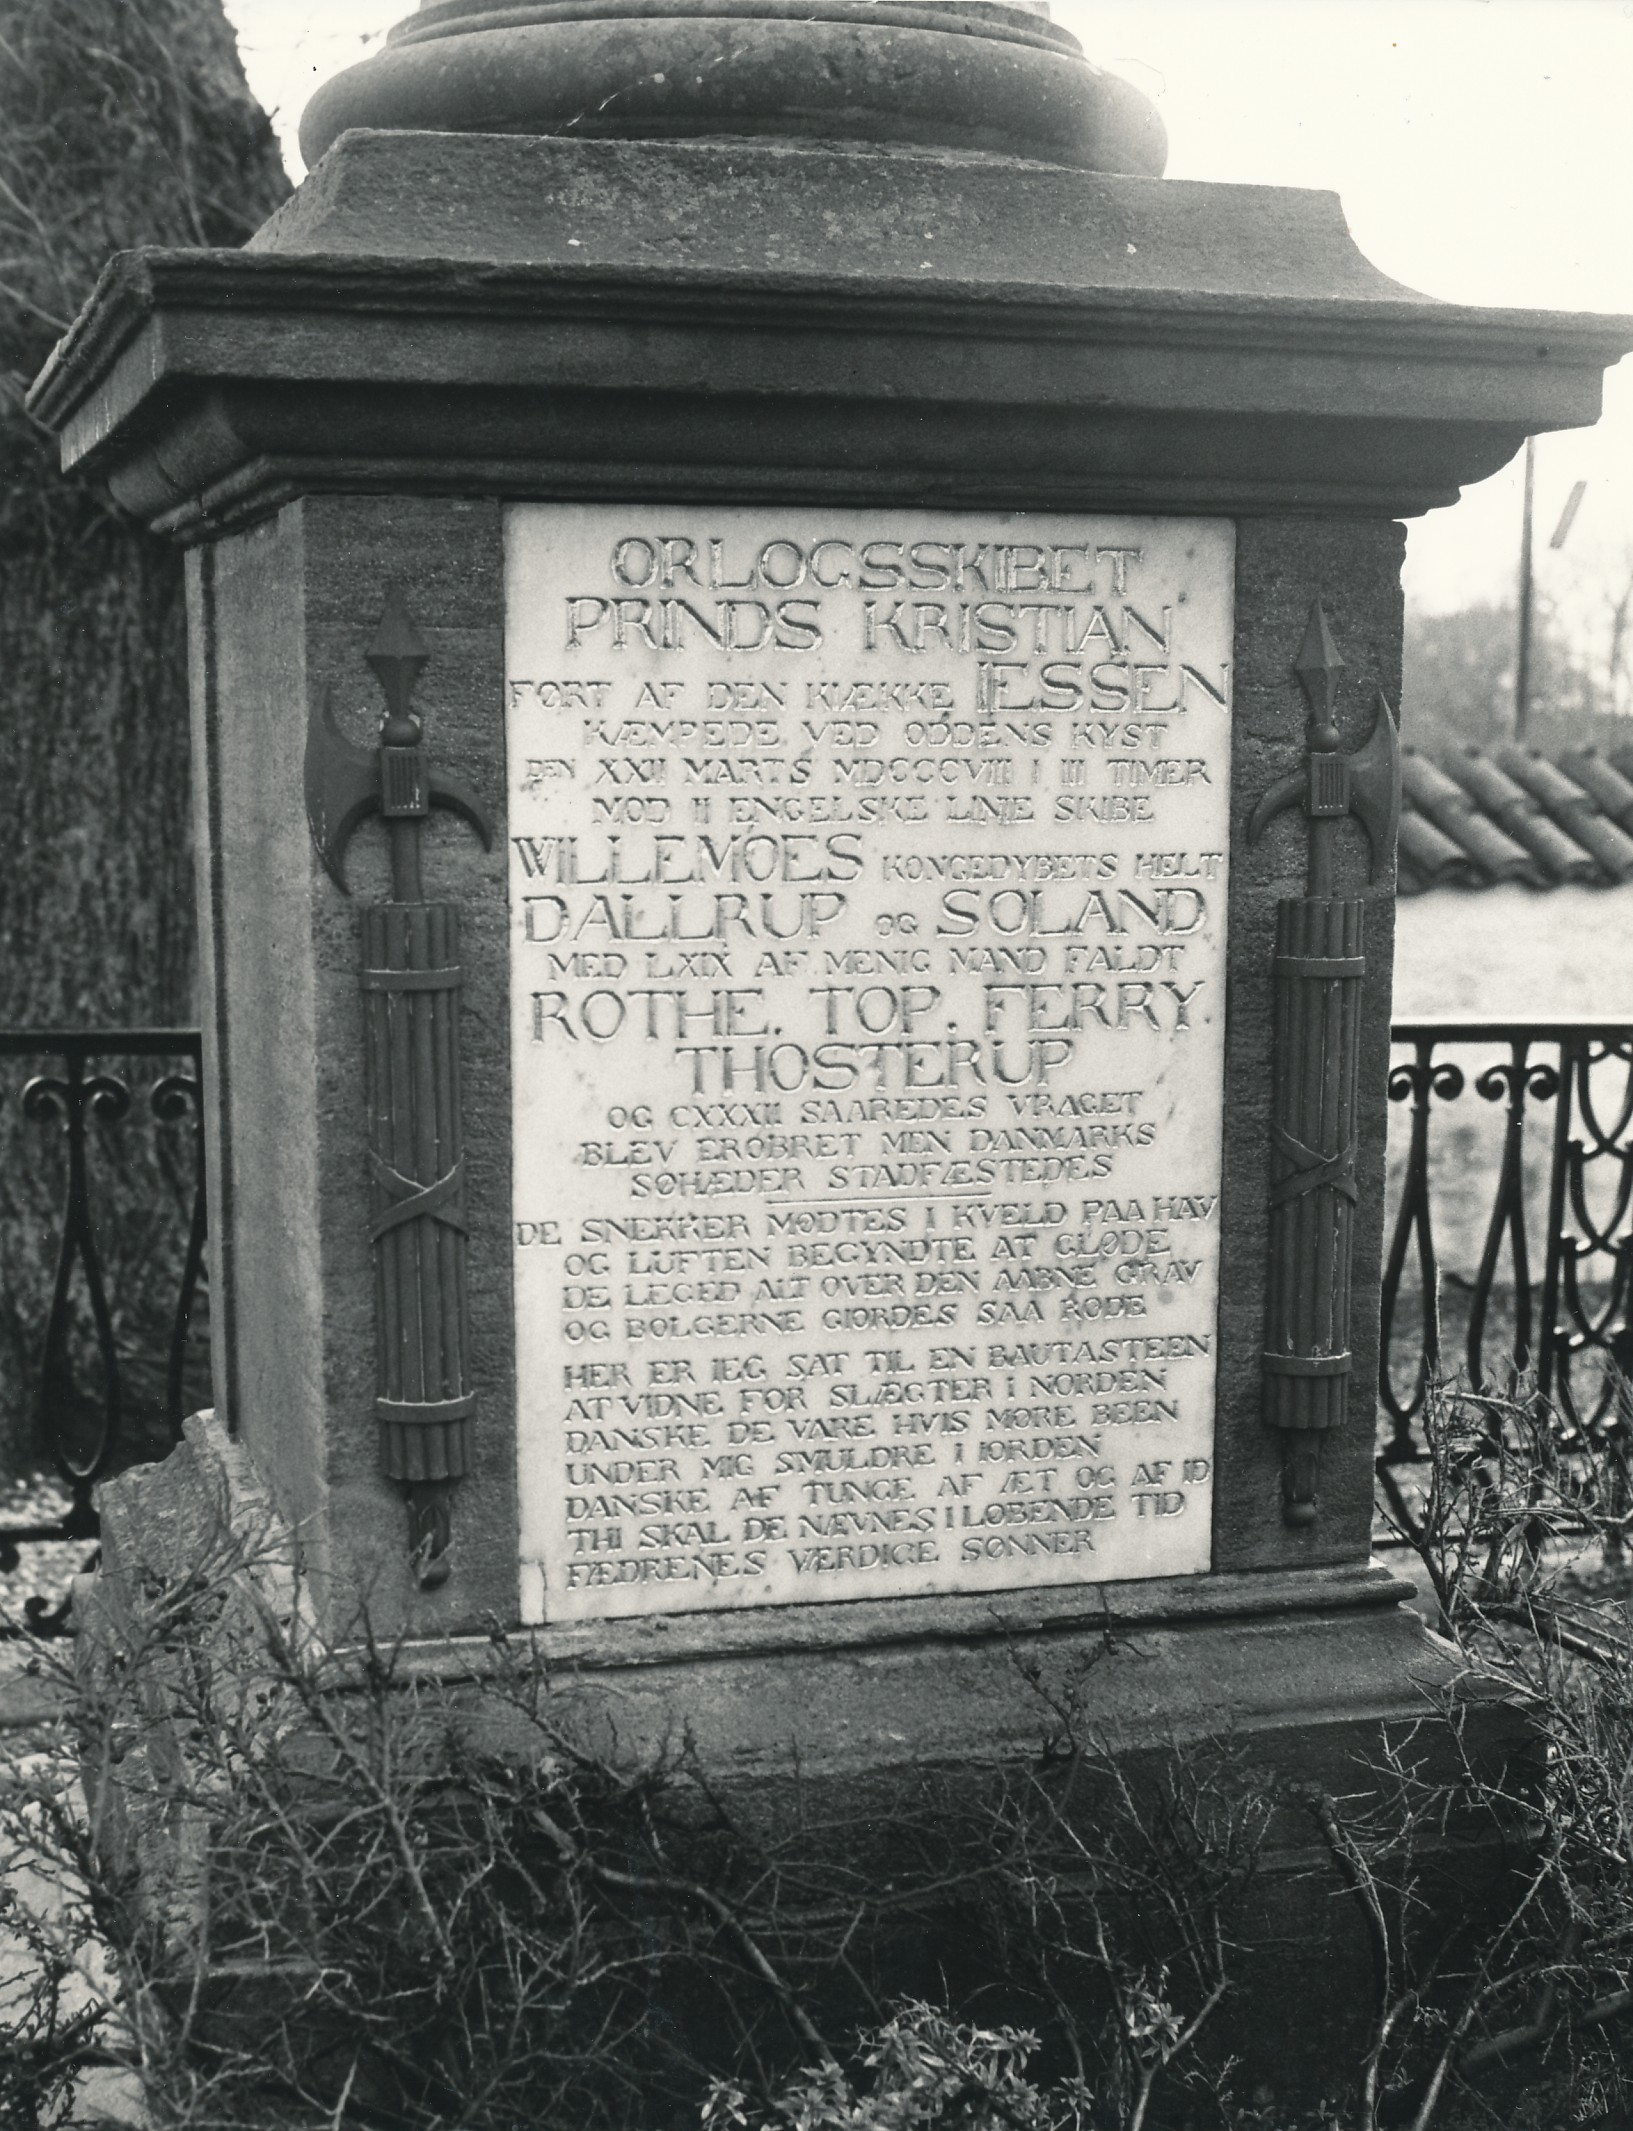 ORLOGSSKIBET
PRINDS KRISTIAN
FØRT AF DEN KIÆKKE IESSEN
KÆMPEDE VED ODDENS KYST
DEN XXII MARTS MDCCCVIII I III TIMER
MOD II ENGELSKE LINIE SKIBE
WILLEMOES KONGEDYBETS HELT
DALLRUP OG SOLAND
MED LXIX AF MENIG MAND FALDT
ROTHE. TOP. FERRY.
THOSTERUP
OG CXXXII SAAREDES VRAGET
BLEV EROBRET MEN DANMARKS
SØHÆDER STADFÆSTEDES
DE SNEKKER MØDTES I KVELD PAA HAV
OG LUFTEN BEGYNDTE AT GLØDE
DE LEGED ALT OVER DEN AABNE GRAV
OG BOLGERNE GIORDES SAA RØDE
HER ER IEG SAT TIL EN BAUTASTEEN
AT VIDNE FOR SLÆGTER I NORDEN
DANSKE DE VARE HVIS MØRE BEEN
UNDER MIG SMULDRE I IORDEN
DANSKE AF TUNGE AF ÆT OG AF ID
THI SKAL DE NÆVNES I LØBENDE TID
FÆDRENES VÆRDIGE SØNNER